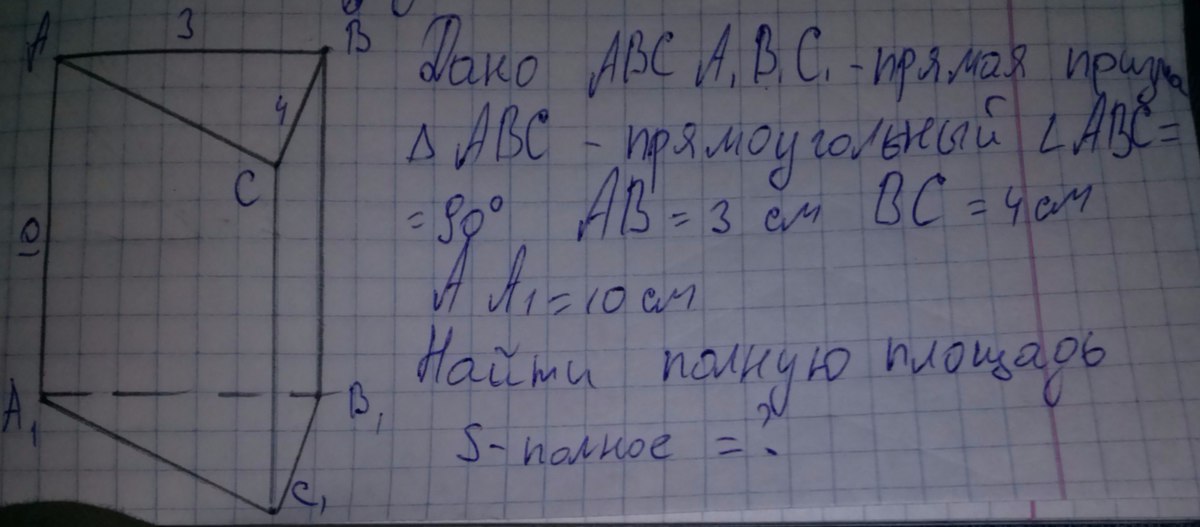 3
A B Дано ABC A₁B₁C₁ - прямая призма
4
Δ ABC - прямоугольный ∠ABC =
C
= 90° AB = 3 см BC = 4 см
10
A A₁ = 10 см
Найти полную площадь
A₁ B₁
S - полное = ?
C₁